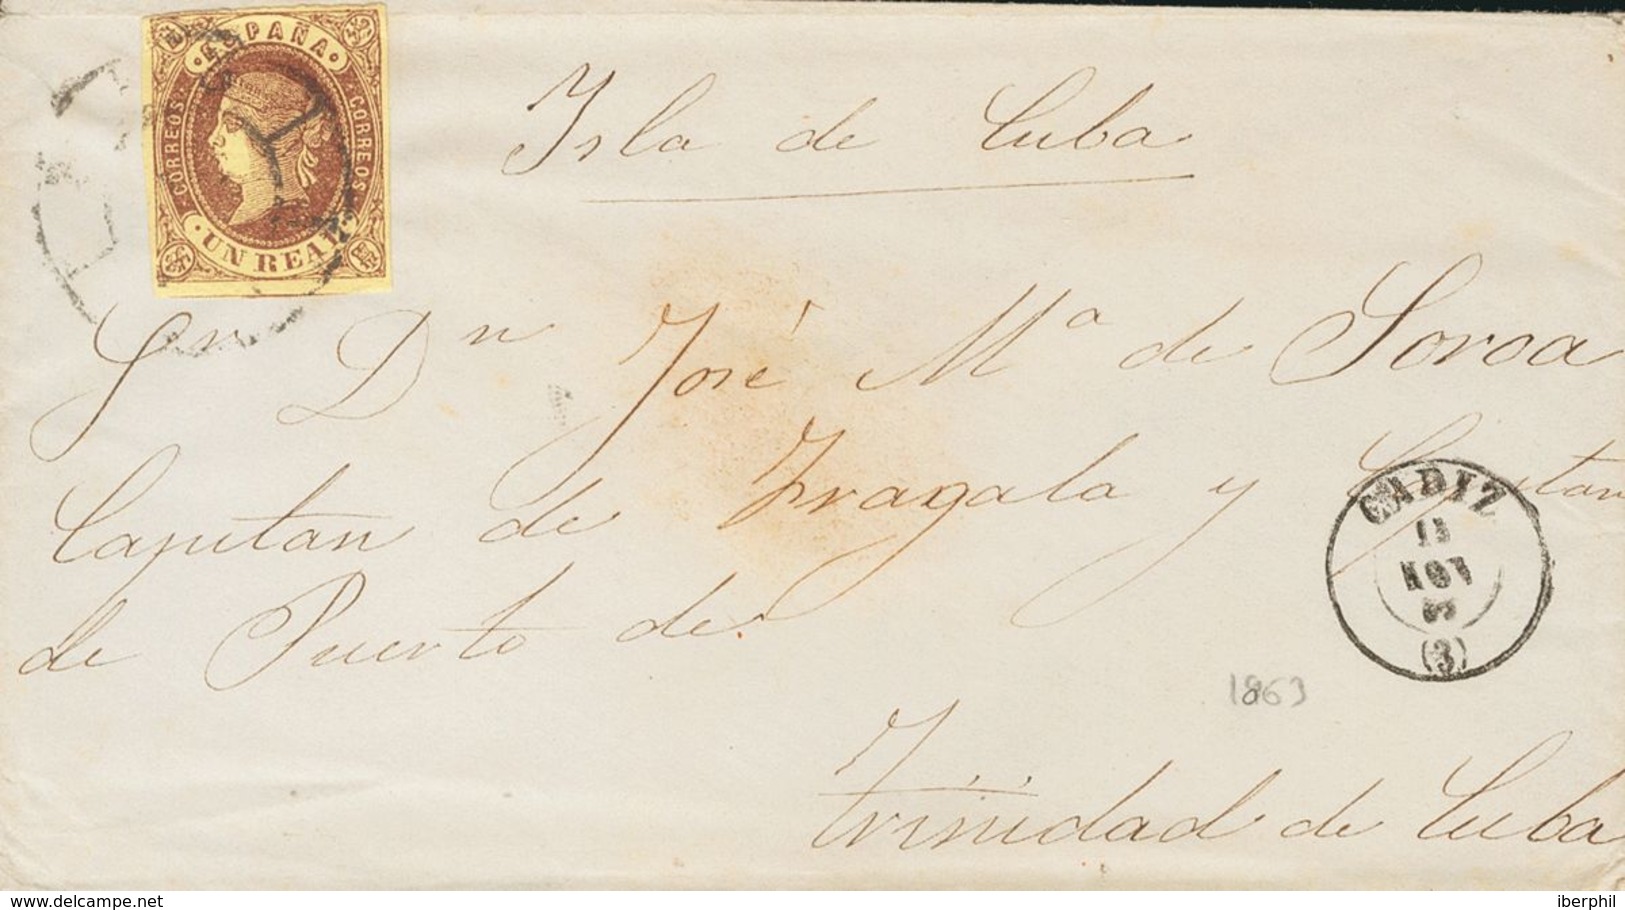 ESPAÑA
CORREOS
CORREOS
UN REAL
Isla de Cuba
Sr Dn José Ma de Soroa
Capitan de Fragata y Capitan
de Puerto de
Trinidad de Cuba
CADIZ
NOV
(3)
1863
www.delcampe.net
iberphil